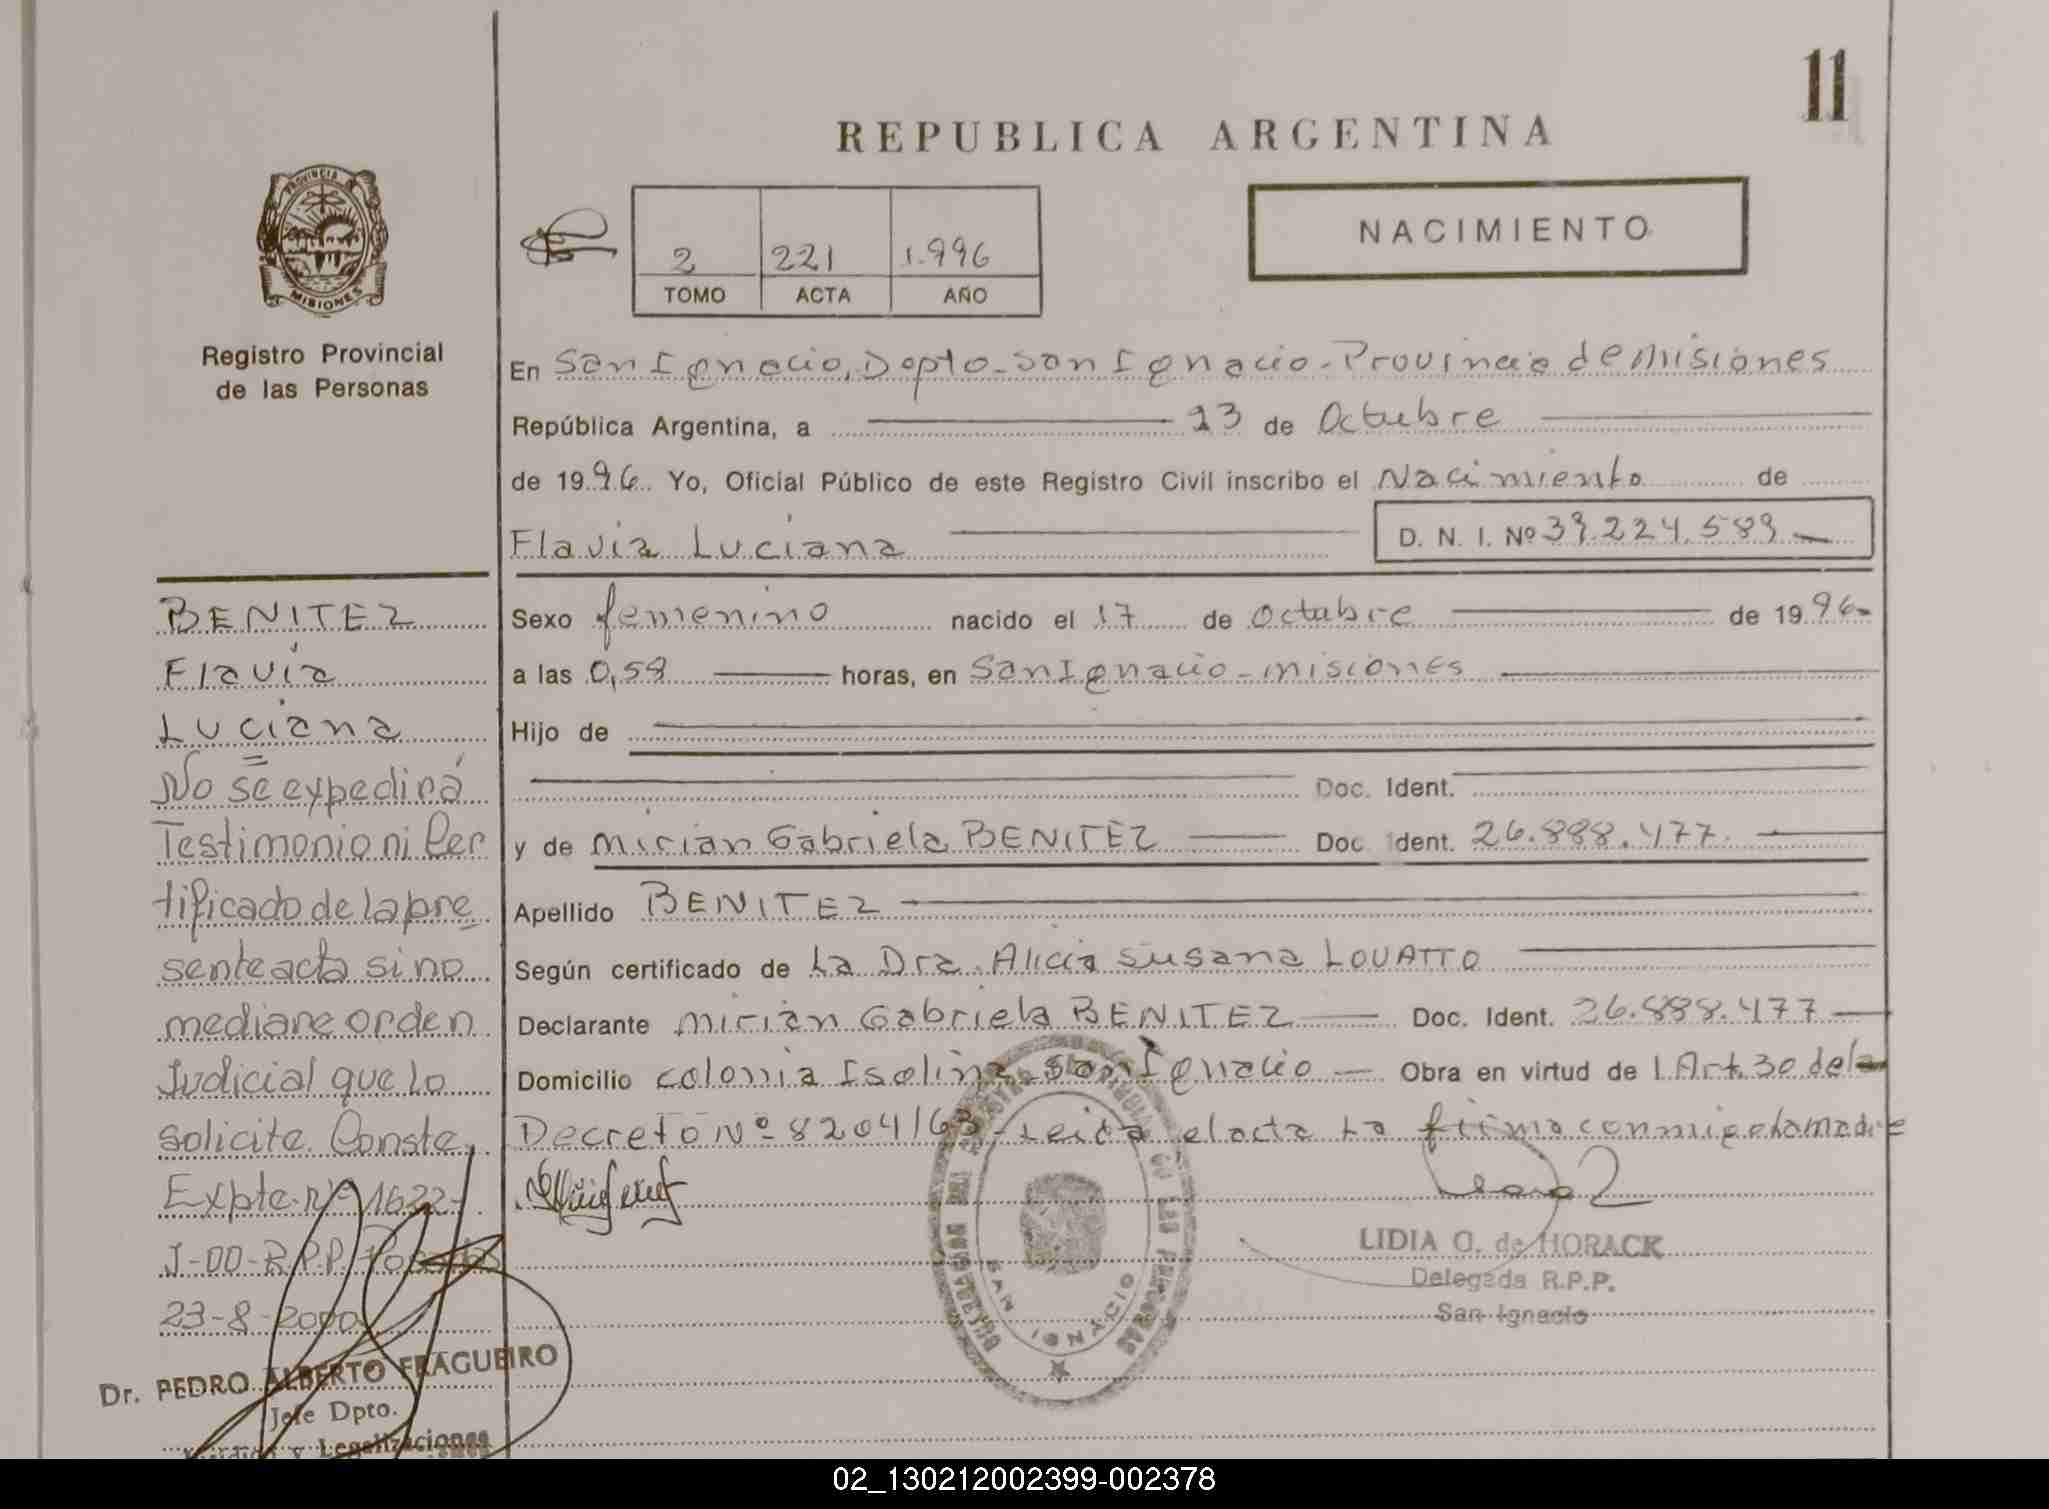 11
REPUBLICA ARGENTINA
PROVINCIA DE
MISIONES
2 221 1.996
TOMO ACTA AÑO
NACIMIENTO
Registro Provincial
de las Personas
En San Ignacio, Dpto. San Ignacio - Provincia de Misiones
República Argentina, a 23 de Octubre
de 1996 Yo, Oficial Público de este Registro Civil inscribo el Nacimiento de
Flavia Luciana D. N. I. Nº 39.224.589
Sexo femenino nacido el 17 de Octubre de 1996
a las 0,58 horas, en San Ignacio - Misiones
Hijo de
Doc. Ident.
y de Mirian Gabriela BENITEZ Doc. Ident. 26.888.477
Apellido BENITEZ
Según certificado de La Dra. Alicia Susana LOVATTO
Declarante Mirian Gabriela BENITEZ Doc. Ident. 26.888.477
Domicilio colonia Isolina San Ignacio Obra en virtud del Art. 30 de la
Decreto Nº 8204/63 - Leida el acta la firma conmigo la madre
LIDIA O. de HORACK
Delegada R.P.P.
San Ignacio
SAN IGNACIO
BENITEZ
Flavia
Luciana
No se expedirá
Testimonio ni Cer
tificado de la pre
sente acta si no
mediane orden
Judicial que lo
solicite. Conste,
Expte. Nº 1622-
J-00-R.P.P. Posadas
23-8-2000
Dr. PEDRO ALBERTO FRAGUEIRO
Jefe Dpto.
Jurídico y Legalizaciones
02_130212002399-002378